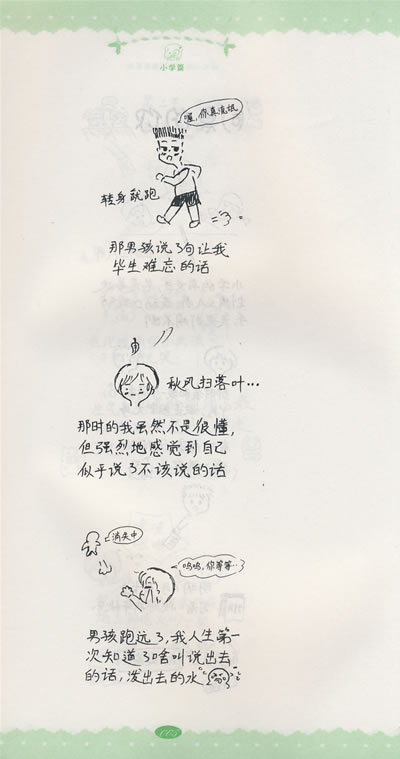 小学篇
渥，你真流氓
转身就跑
那男孩说了句让我
毕生难忘的话
秋风扫落叶…
那时的我虽然不是很懂，
但强烈地感觉到自己
似乎说了不该说的话
消失中
呜呜，你等等…
男孩跑远了，我人生第一
次知道了啥叫说出去
的话，泼出去的水
005